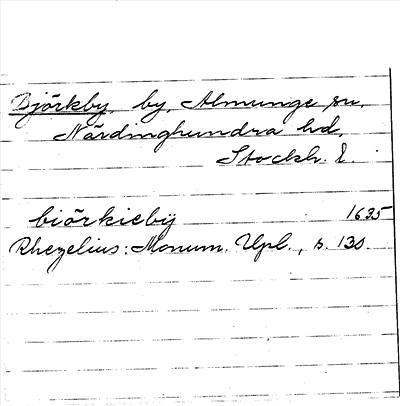 Björkby, by, Almunge sn,
Närdinghundra hd,
Stockh. l.
biörkieby 1635
Rhezelius: Monum. Upl., s. 130.